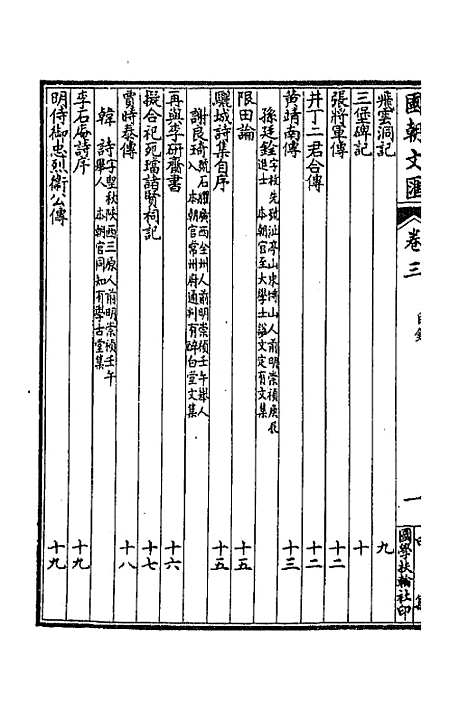 國朝文匯 卷三 目錄 一 國學扶輪社印
飛雲洞記 九
三堡碑記 十
張將軍傳 十二
井丁二君合傳 十二
黃靖南傳 十三
孫廷銓 字枚先號沚亭山東博山人前明崇禎庚辰
進士 本朝官至大學士諡文定有文集
限田論 十五
驪城詩集自序 十五
謝良琦 號石臞廣西全州人前明崇禎壬午舉人
入 本朝官常州府通判有醉白堂文集
再與李研齋書 十六
擬合祀死璫諸賢祠記 十七
賈時泰傳 十八
韓 詩 字聖秋陝西三原人前明崇禎壬午
舉人 本朝官同知有學古堂集
李石庵詩序 十九
明侍御忠烈衛公傳 十九